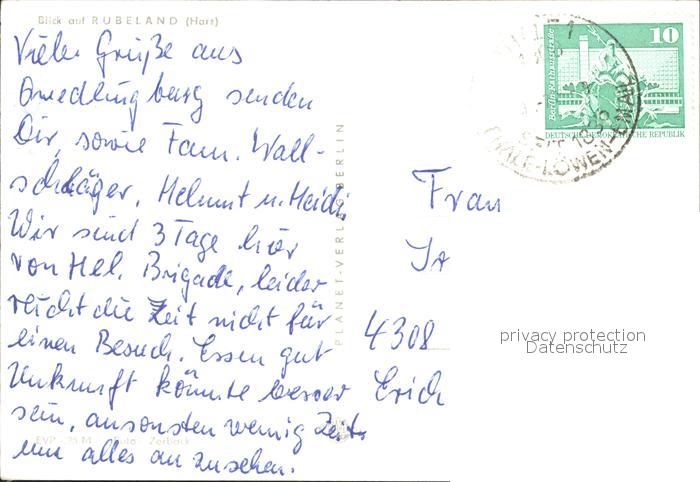 Blick auf RUBELAND (Harz)
Viele Grüße aus
Quedlingburg senden
Dir, sowie Fam. Wall-
schläger, Helmut u. Heidi
Wir sind 3 Tage hier
von Hel. Brigade, leider
reicht die Zeit nicht für
einen Besuch. Essen gut
Unkunft könnte besser
sein, ansonsten wenig Zeit
um alles an zusehen.
EVP -,25 M Foto: Zerback
PLANET-VERLAG BERLIN
Berlin, Rathausstraße
10
DEUTSCHE DEMOKRATISCHE REPUBLIK
SEIT 1835
THALE-LÖWEN-EMAIL
Frau
4308
privacy protection
Datenschutz